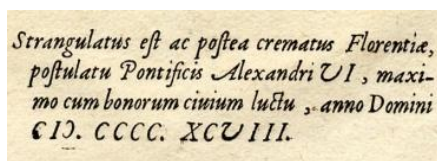 Strangulatus eſt ac poſtea crematus Florentiæ,
poſtulatu Pontificis Alexandri VI, maxi-
mo cum bonorum ciuium luctu, anno Domini
CIↃ. CCCC. XCVIII.